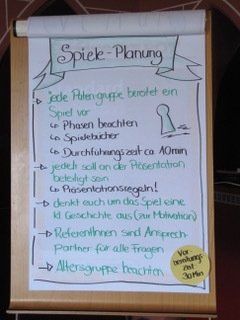 Spiele-Planung
→ jede Patengruppe bereitet ein
Spiel vor
↳ Phasen beachten
↳ Spielebücher
↳ Durchführungszeit ca 10min
→ jede/r soll an der Präsentation
beteiligt sein
↳ Präsentationsregeln!
→ denkt euch um das Spiel eine
kl Geschichte aus (zur Motivation)
→ ReferentInnen sind Ansprech-
Partner für alle Fragen
→ Altersgruppe beachten
Vor
bereitungs
zeit
30 Min